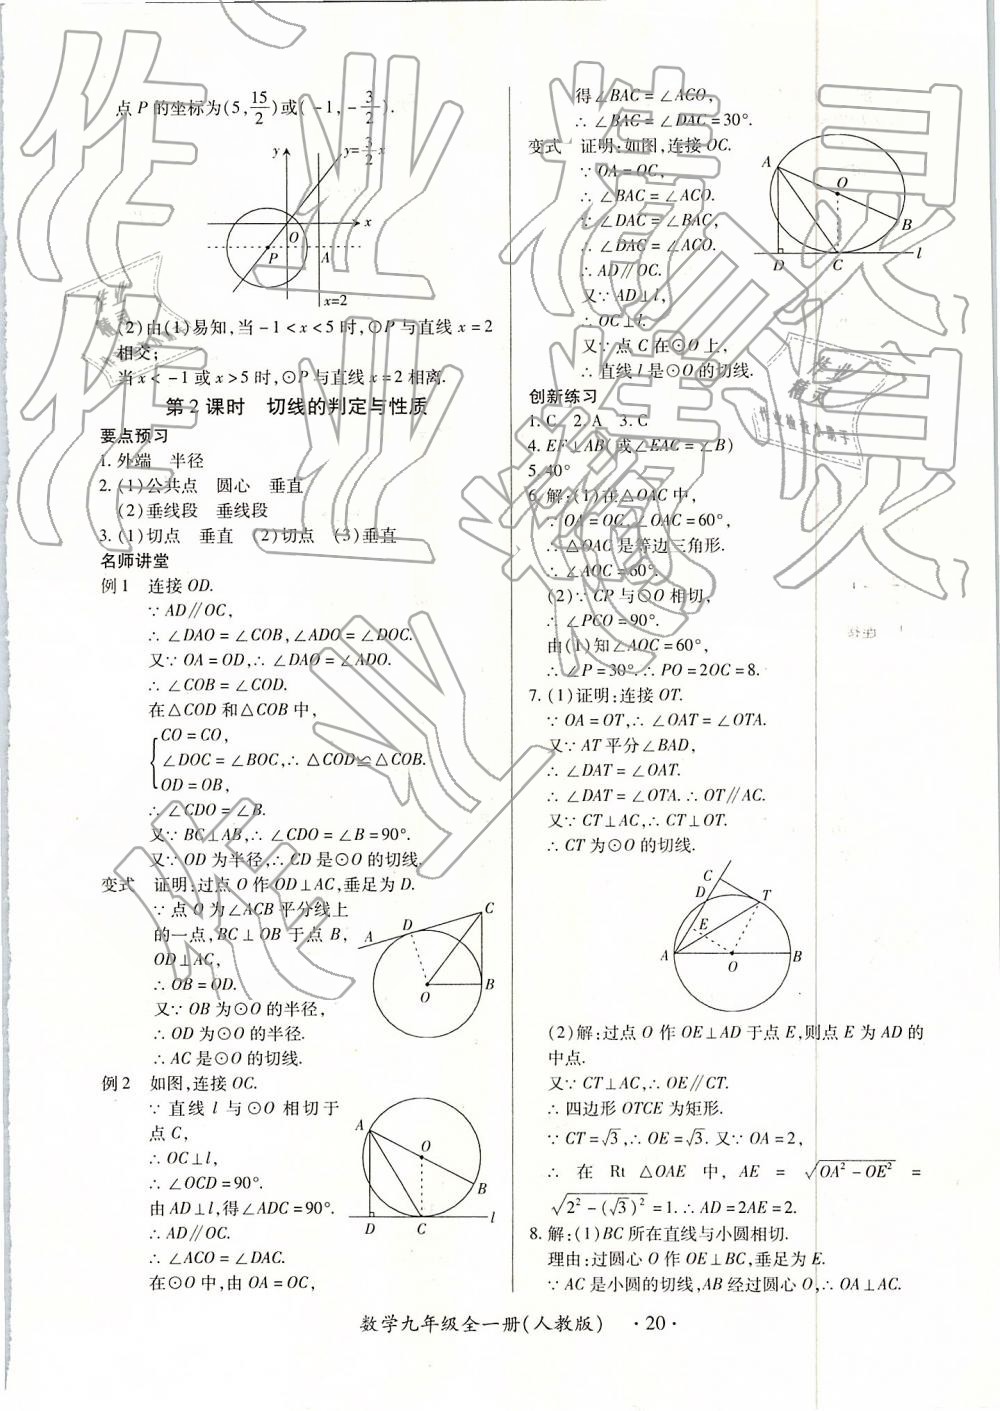 点 P 的坐标为(5, 15/2)或(-1, -3/2).
y
y=3/2 x
x
O
P
A
x=2
(2)由(1)易知,当 -1<x<5 时,⊙P 与直线 x=2
相交;
当 x<-1 或 x>5 时,⊙P 与直线 x=2 相离.
第 2 课时 切线的判定与性质
要点预习
1. 外端 半径
2. (1)公共点 圆心 垂直
(2)垂线段 垂线段
3. (1)切点 垂直 (2)切点 (3)垂直
名师讲堂
例 1 连接 OD.
∵ AD∥OC,
∴ ∠DAO=∠COB,∠ADO=∠DOC.
又∵ OA=OD,∴ ∠DAO=∠ADO.
∴ ∠COB=∠COD.
在△COD 和△COB 中,
CO=CO,
∠DOC=∠BOC,∴ △COD≌△COB.
OD=OB,
∴ ∠CDO=∠B.
又∵ BC⊥AB,∴ ∠CDO=∠B=90°.
又∵ OD 为半径,∴ CD 是⊙O 的切线.
变式 证明:过点 O 作 OD⊥AC,垂足为 D.
∵ 点 O 为∠ACB 平分线上
的一点,BC⊥OB 于点 B,
OD⊥AC,
∴ OB=OD.
又∵ OB 为⊙O 的半径,
∴ OD 为⊙O 的半径.
∴ AC 是⊙O 的切线.
C
D
A
O
B
例 2 如图,连接 OC.
∵ 直线 l 与⊙O 相切于
点 C,
∴ OC⊥l,
∴ ∠OCD=90°.
由 AD⊥l,得∠ADC=90°.
∴ AD∥OC.
∴ ∠ACO=∠DAC.
在⊙O 中,由 OA=OC,
A
O
B
D
C
l
得∠BAC=∠ACO,
∴ ∠BAC=∠DAC=30°.
变式 证明:如图,连接 OC.
∵ OA=OC,
∴ ∠BAC=∠ACO.
∵ ∠DAC=∠BAC,
∴ ∠DAC=∠ACO.
∴ AD∥OC.
又∵ AD⊥l,
∴ OC⊥l.
又∵ 点 C 在⊙O 上,
∴ 直线 l 是⊙O 的切线.
A
O
B
D
C
l
创新练习
1. C 2. A 3. C
4. EF⊥AB(或∠EAC=∠B)
5. 40°
6. 解:(1)在△OAC 中,
∵ OA=OC,∠OAC=60°,
∴ △OAC 是等边三角形.
∴ ∠AOC=60°.
(2)∵ CP 与⊙O 相切,
∴ ∠PCO=90°.
由(1)知∠AOC=60°,
∴ ∠P=30°.∴ PO=2OC=8.
7. (1)证明:连接 OT.
∵ OA=OT,∴ ∠OAT=∠OTA.
又∵ AT 平分∠BAD,
∴ ∠DAT=∠OAT.
∴ ∠DAT=∠OTA.∴ OT∥AC.
又∵ CT⊥AC,∴ CT⊥OT.
∴ CT 为⊙O 的切线.
C
D
T
E
A
O
B
(2)解:过点 O 作 OE⊥AD 于点 E,则点 E 为 AD 的
中点.
又∵ CT⊥AC,∴ OE∥CT.
∴ 四边形 OTCE 为矩形.
∵ CT=√3,∴ OE=√3. 又∵ OA=2,
∴ 在 Rt △OAE 中, AE = √(OA²-OE²) =
√(2²-(√3)²)=1.∴ AD=2AE=2.
8. 解:(1)BC 所在直线与小圆相切.
理由:过圆心 O 作 OE⊥BC,垂足为 E.
∵ AC 是小圆的切线,AB 经过圆心 O,∴ OA⊥AC.
数学九年级全一册(人教版) ·20·
作业精灵
作业精灵
作业精灵
作业精灵